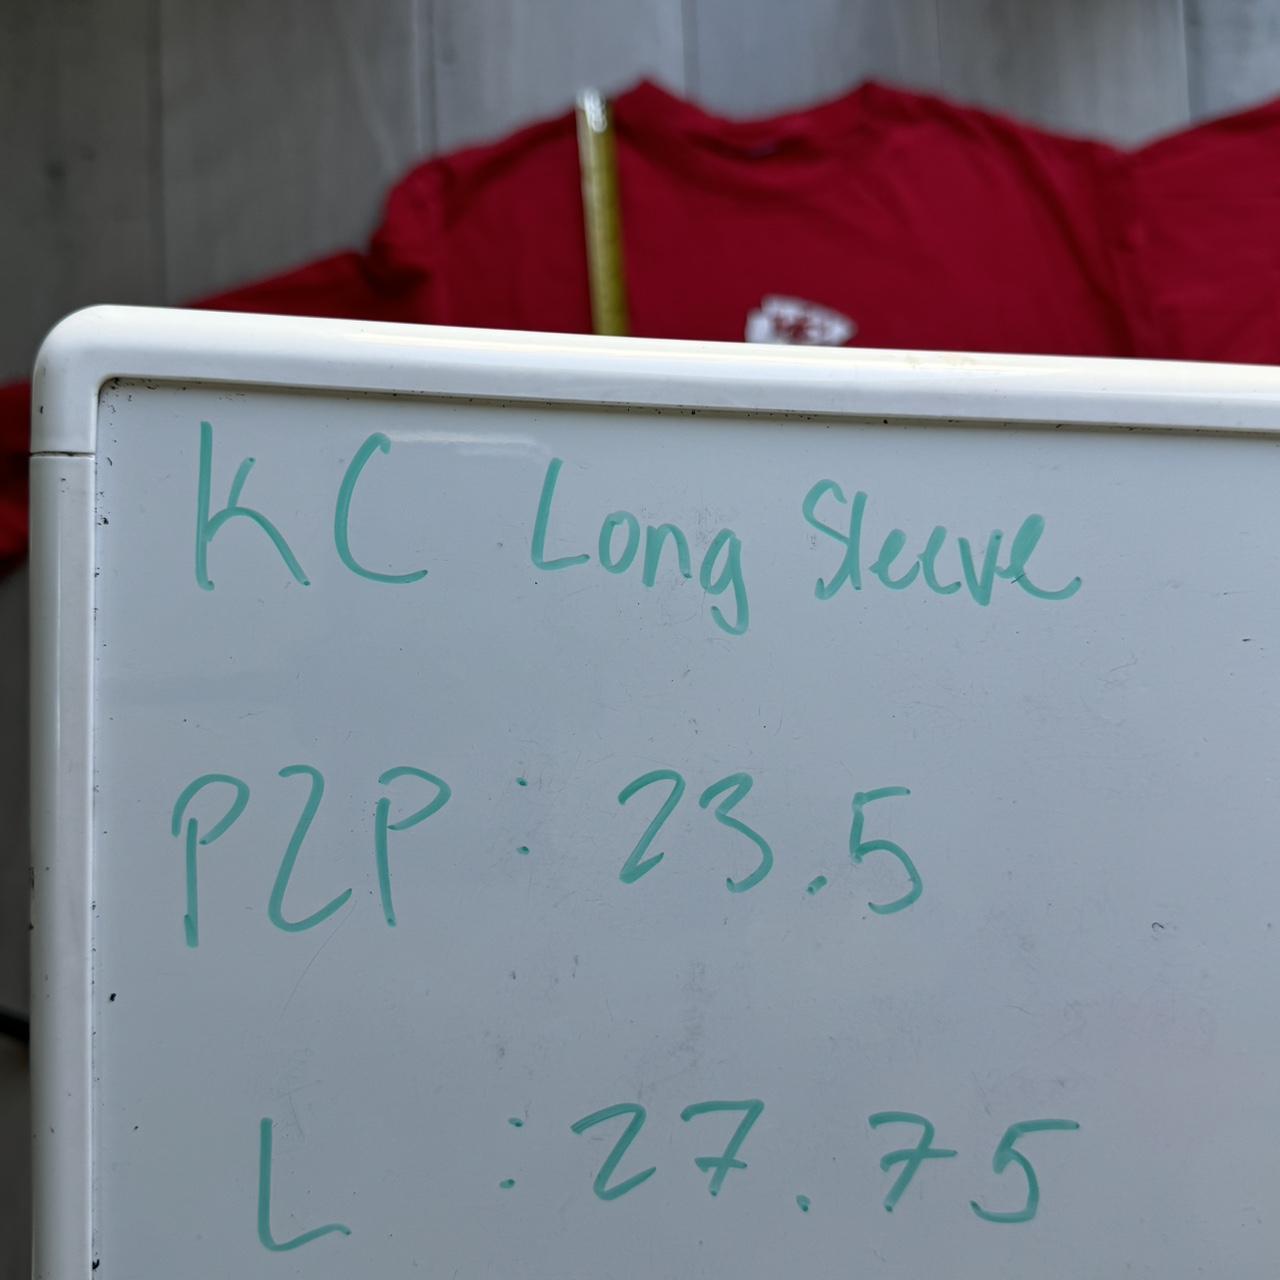 KC Long Sleeve
P2P : 23.5
L : 27.75